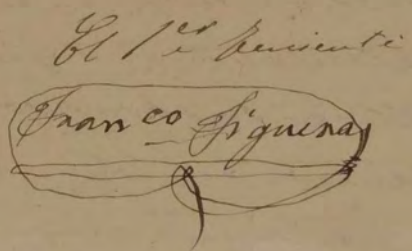 El 1er Teniente
Franco Figueroa